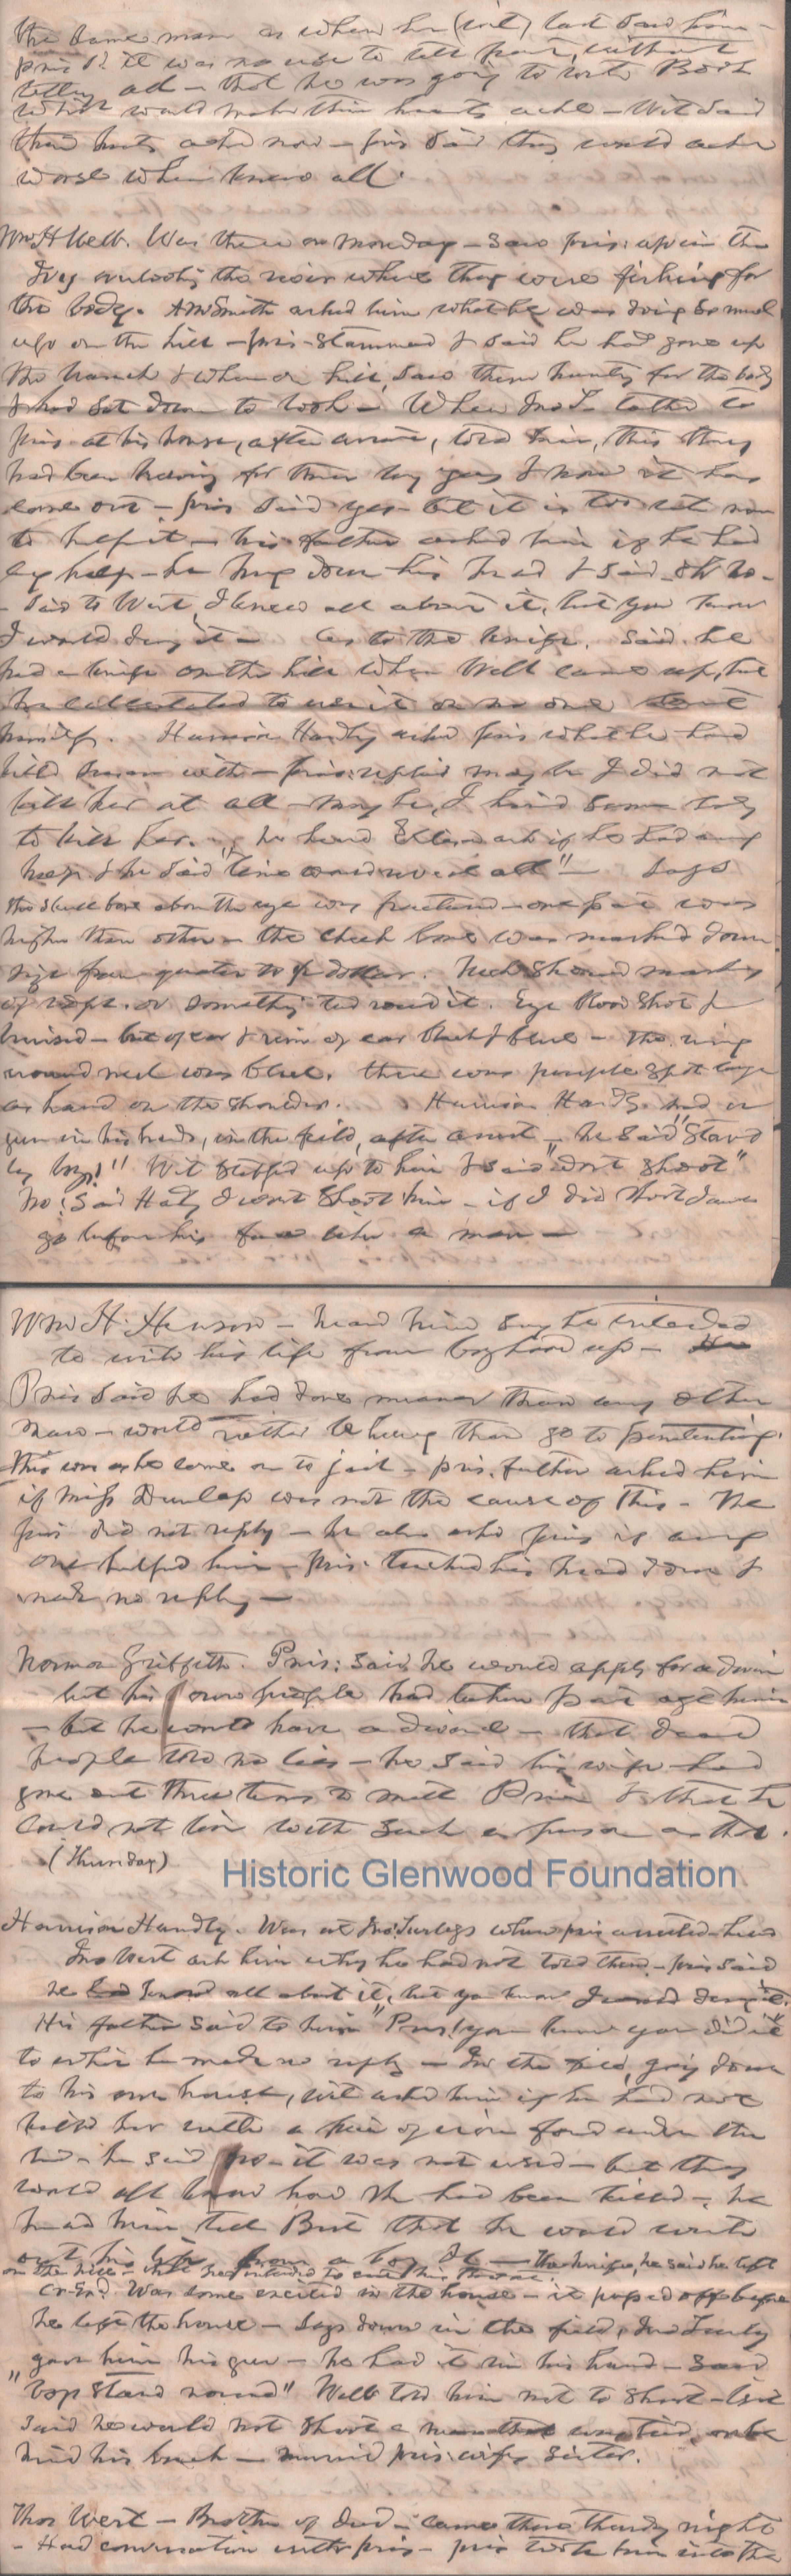 the same man as when he (wit) last saw him —
pris sd it was no use to tell part, without
telling all — that he was going to write Book
which would make their hearts ache — Wit said
their hearts ached now — pris said they would ache
worse when knew all.
Wm H Webb. Was there on Monday — saw pris: up in the
Ivy overlooking the river where they were fishing for
the body. AmSmith asked him what he was doing so much
up on the hill — pris stammered & said he had gone up
the branch & when on hill, saw them hunting for the body
& had sat down to look — When Jno T. talked to
pris at his house, after arrest, told him, this thing
had been brewing for three long years & now it has
come out — pris said yes — but it is too late now
to help it — his father asked him if he had
any help — he hung down his head & said Oh No —
— said to West, I knew all about it, but you know
I would deny it — As to the knife. said he
had a knife on the hill when Webb came up, but
he calculated to use it on no one
himself. Harrison Handly asked pris what he had
killed Susan with — pris: replied may be I did not
kill her at all — maybe, I hired some body
to kill her. — he heard ask if he had any
help & he said "time would reveal all" — Says
the skull bone above the eye was fractured — one place was
higher than other — the cheek bone was mashed down
size from quarter to dollar. Neck showed marks
of rope. or something tied round it. Eye Blood Shot &
bruised — but of ear & rim of ear black & blue — The ring
around neck was blue. there was purple spot large
as hand on the shoulder. Harrison Handly had a
gun in his hands, in the field, after arrest — he said "Stand
by boys!" Wit stepped up to him & said "dont shoot"
No! Said Hanly I wont shoot him — if I did shoot I would
go before his face like a man —
Wm H. Henson — heard him say he intended
to write his life from boyhood up —
Pris said he had done meaner than any other
man — would rather be hung than go to penitentiary.
this was as he come on to jail — pris. father asked him
if Miss Dunlap was not the cause of this — The
pris did not reply — he also asked pris if any
one helped him — Pris. ducked his head down &
made no reply —
Norman Griffith. Pris: said he would apply for a divorce
but his own people had taken part agst him
— but he would have a divorce — that dead
people told no lies — he said his wife had
gone out three times to meet Price & that he
could not live with such a person as that.
(Thursday)
Historic Glenwood Foundation
Harrison Handly. Was at Jno Turleys when pris arrested — heard
Jno West ask him why he had not told them — pris said
he knew all about it, but you know I would deny it.
His father said to him "Pris! you know you did it"
to which he made no reply — In the field, going down
to his own house, wit asked him if he had not
killed her with a piece of iron found under the
bed — he said no — it was not used — but they
would all know how she had been killed — he
heard him tell Burt that he would write
out his life from a boy It — The knife, he said he left
on the hill — that he intended to cut his throat.
Cr-Exd. Was some excited in the house — it passed off before
he left the house — Says down in the field, Jno Turly
gave him his gun — he had it in his hand — said
"boys stand round" Webb told him not to shoot — Wit
said he would not shoot a man that was tied, or be
hind his back — married pris: wifes sister.
Thos West — Brother of decd — came there Thursday night
— Had conversation with pris — pris took him into the